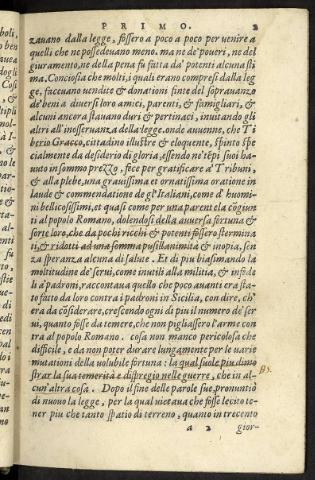 PRIMO. 2
zauano dalla legge, fossero a poco a poco per venire a
quelli che ne possedeuano meno. ma ne de' poueri, ne del
giuramento, ne della pena fu fatta da' potenti alcuna sti
ma. Conciosia che molti, i quali erano compresi dalla leg
ge, faceuano vendite & donationi finte del soprauanzo
de' beni a diuersi loro amici, parenti, & famigliari, &
alcuni ancora stauano duri & pertinaci, inuitando gli
altri all'inosseruanza della legge. onde auuenne, che Ti
berio Gracco, cittadino illustre & eloquente, spinto spe
cialmente da desiderio di gloria, essendo ne' tẽpi suoi ha-
uuto in sommo prezzo, fece per gratificare a' Tribuni,
& alla plebe, una grauissima et ornatissima oratione in
laude & commendatione de gl'Italiani, come d'huomi-
ni bellicosissimi, et quasi come per una parentela cõgiun
ti al popolo Romano, dolendosi della auuersa fortuna &
sorte loro, che da pochi ricchi & potenti fossero stermina
ti, & ridotti ad una somma pusillanimità & inopia, sen
za speranza alcuna di salute. Et di piu biasimando la
moltitudine de' serui, come inutili alla militia, & infede
li a' padroni, raccontaua quello che poco auanti era sta-
to fatto da loro contra i padroni in Sicilia, con dire, ch'
era da cõsiderare, crescendo ogni di piu il numero de' ser
ui, quanto fosse da temere, che non pigliassero l'arme con
tra al popolo Romano. cosa non manco pericolosa che
difficile, e da non poter durare lungamente per le varie
mutationi della volubile fortuna: la qual suole piu dimo
strar la sua temerità e dispregio nelle guerre, che in al-
cun'altra cosa. Dopo il fine delle parole sue pronuntiò
di nuouo la legge, per la qual vietaua che fosse lecito te-
ner piu che tanto spatio di terreno, quanto in trecento
a 2 gior-